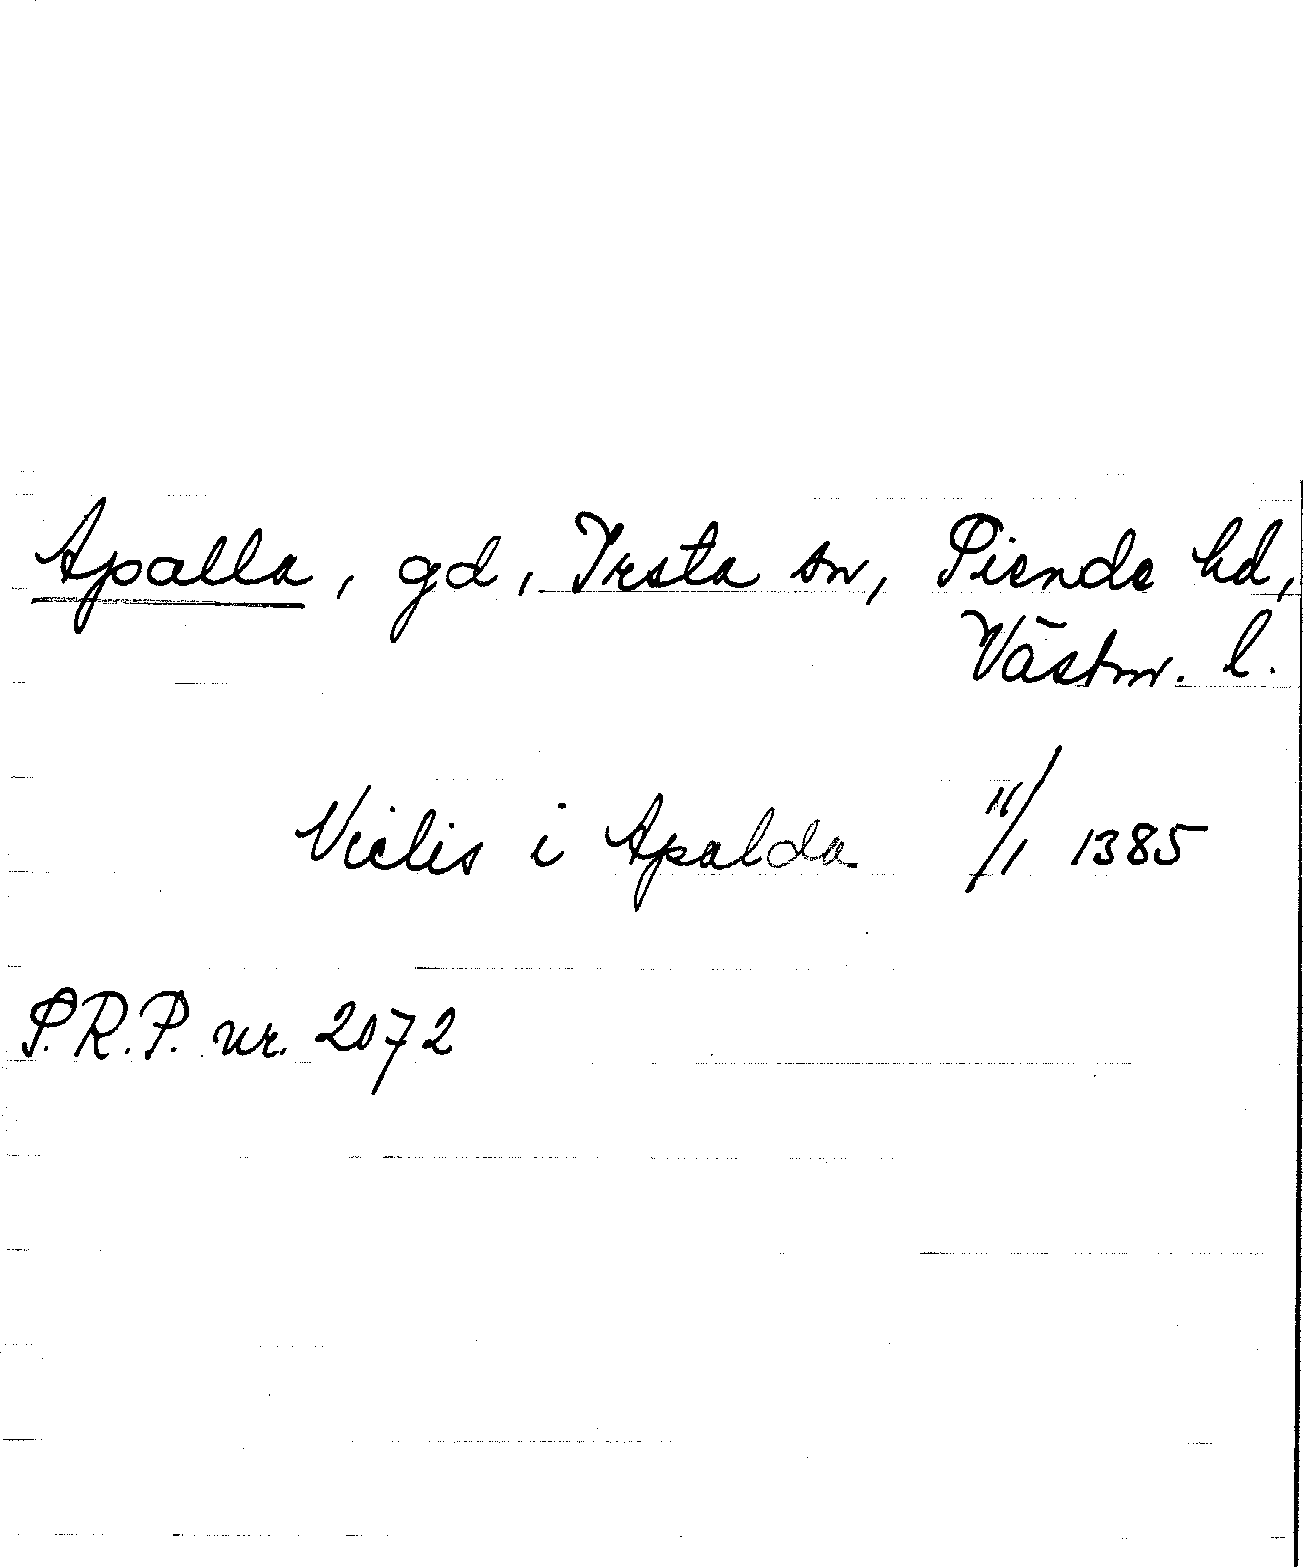 Apalla, gd, Irsta sn, Siende hd,
Västm. l.
Niclis i Apalda 11/1 1385
S.R.P. nr. 2072